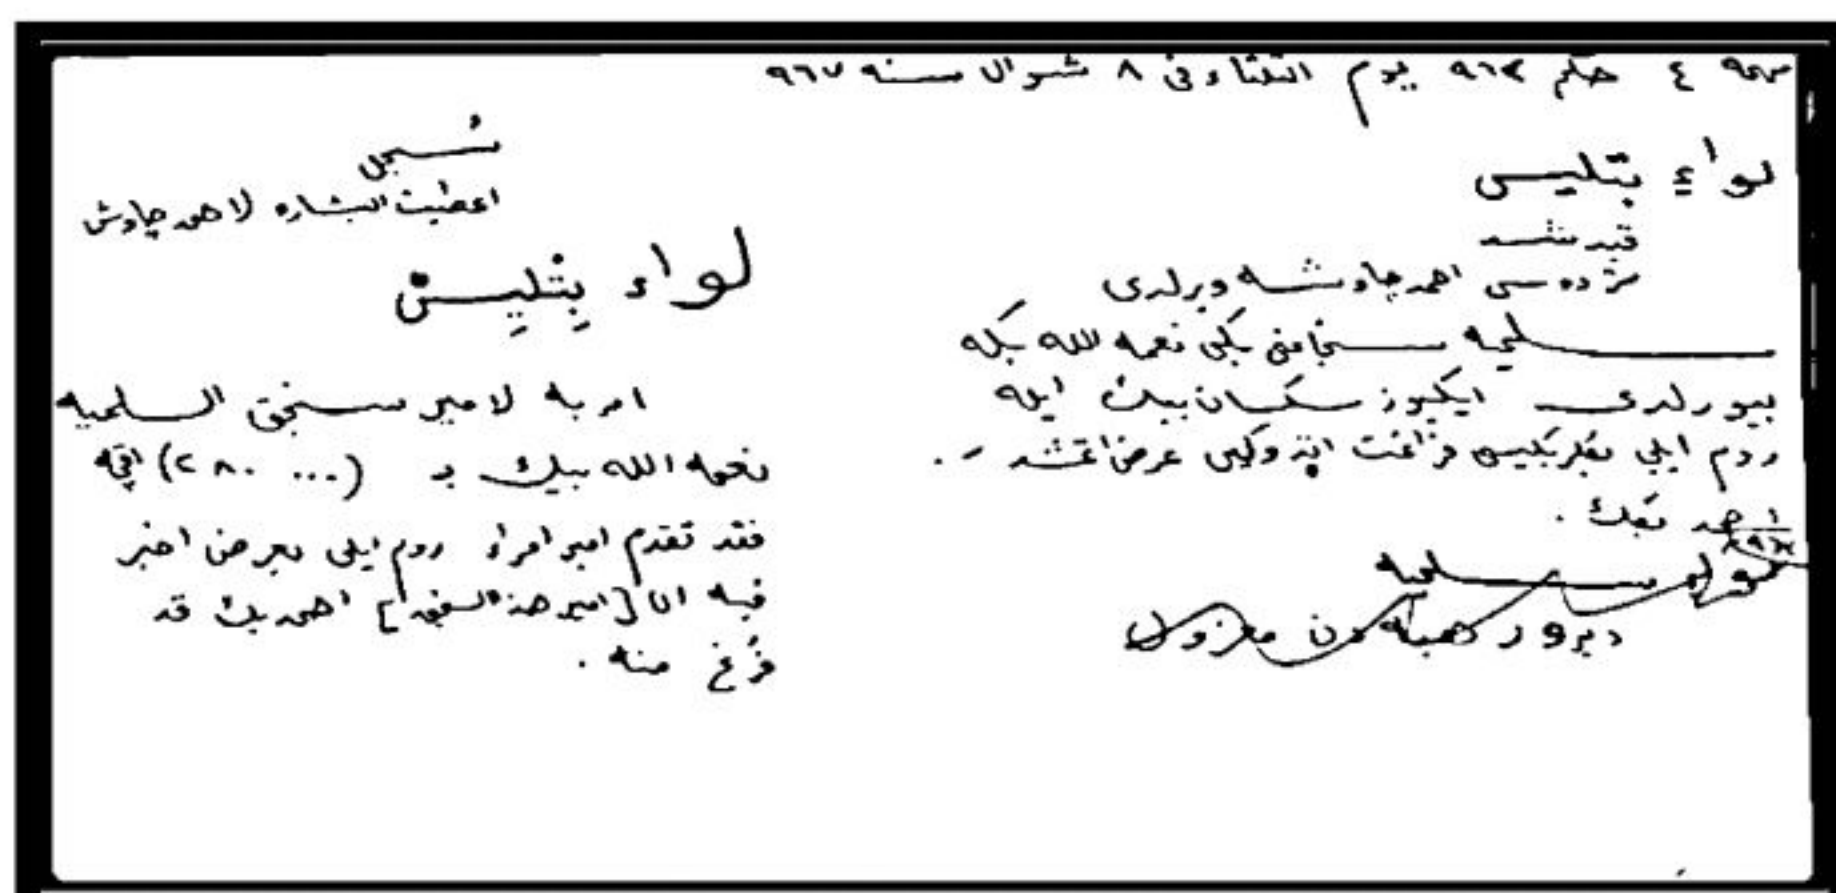 مهمه ٤ حكم ٩٦٢ يوم الثلثاء فى ٨ شوال سنه ٩٦٧
لواءِ بتليس
قيد شد
مژده سى احمد چاوشه ويرلدى
سلميه سنجاغى بكى نعمه الله بكه
بيورلدى ايكيوز سكسان بيك ايله
روم ايلى بكلربكيسى فراغت ايتدوكين عرض اتمشد .
احمد بك .
لواء سلميه
دن معزول
سُجل
اعطيت البشاره لاحمد چاوش
لواء بِتْلِيِسْ
امر به لامير سنجق السلميه
نعمه الله بيك بـ (٢٨٠٠٠٠) اقچه
فقد تقدم امير امراء روم ايلى بعرض اخبر
فيه ان [امير هذه السنجق] احمد بك قد
فرغ منه .